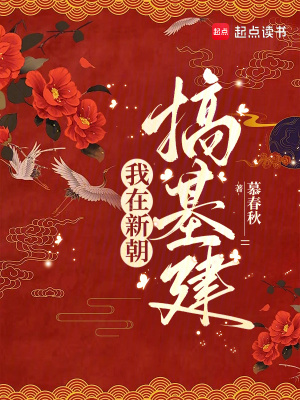 起点 起点读书
我在新朝
搞基建
慕春秋 著